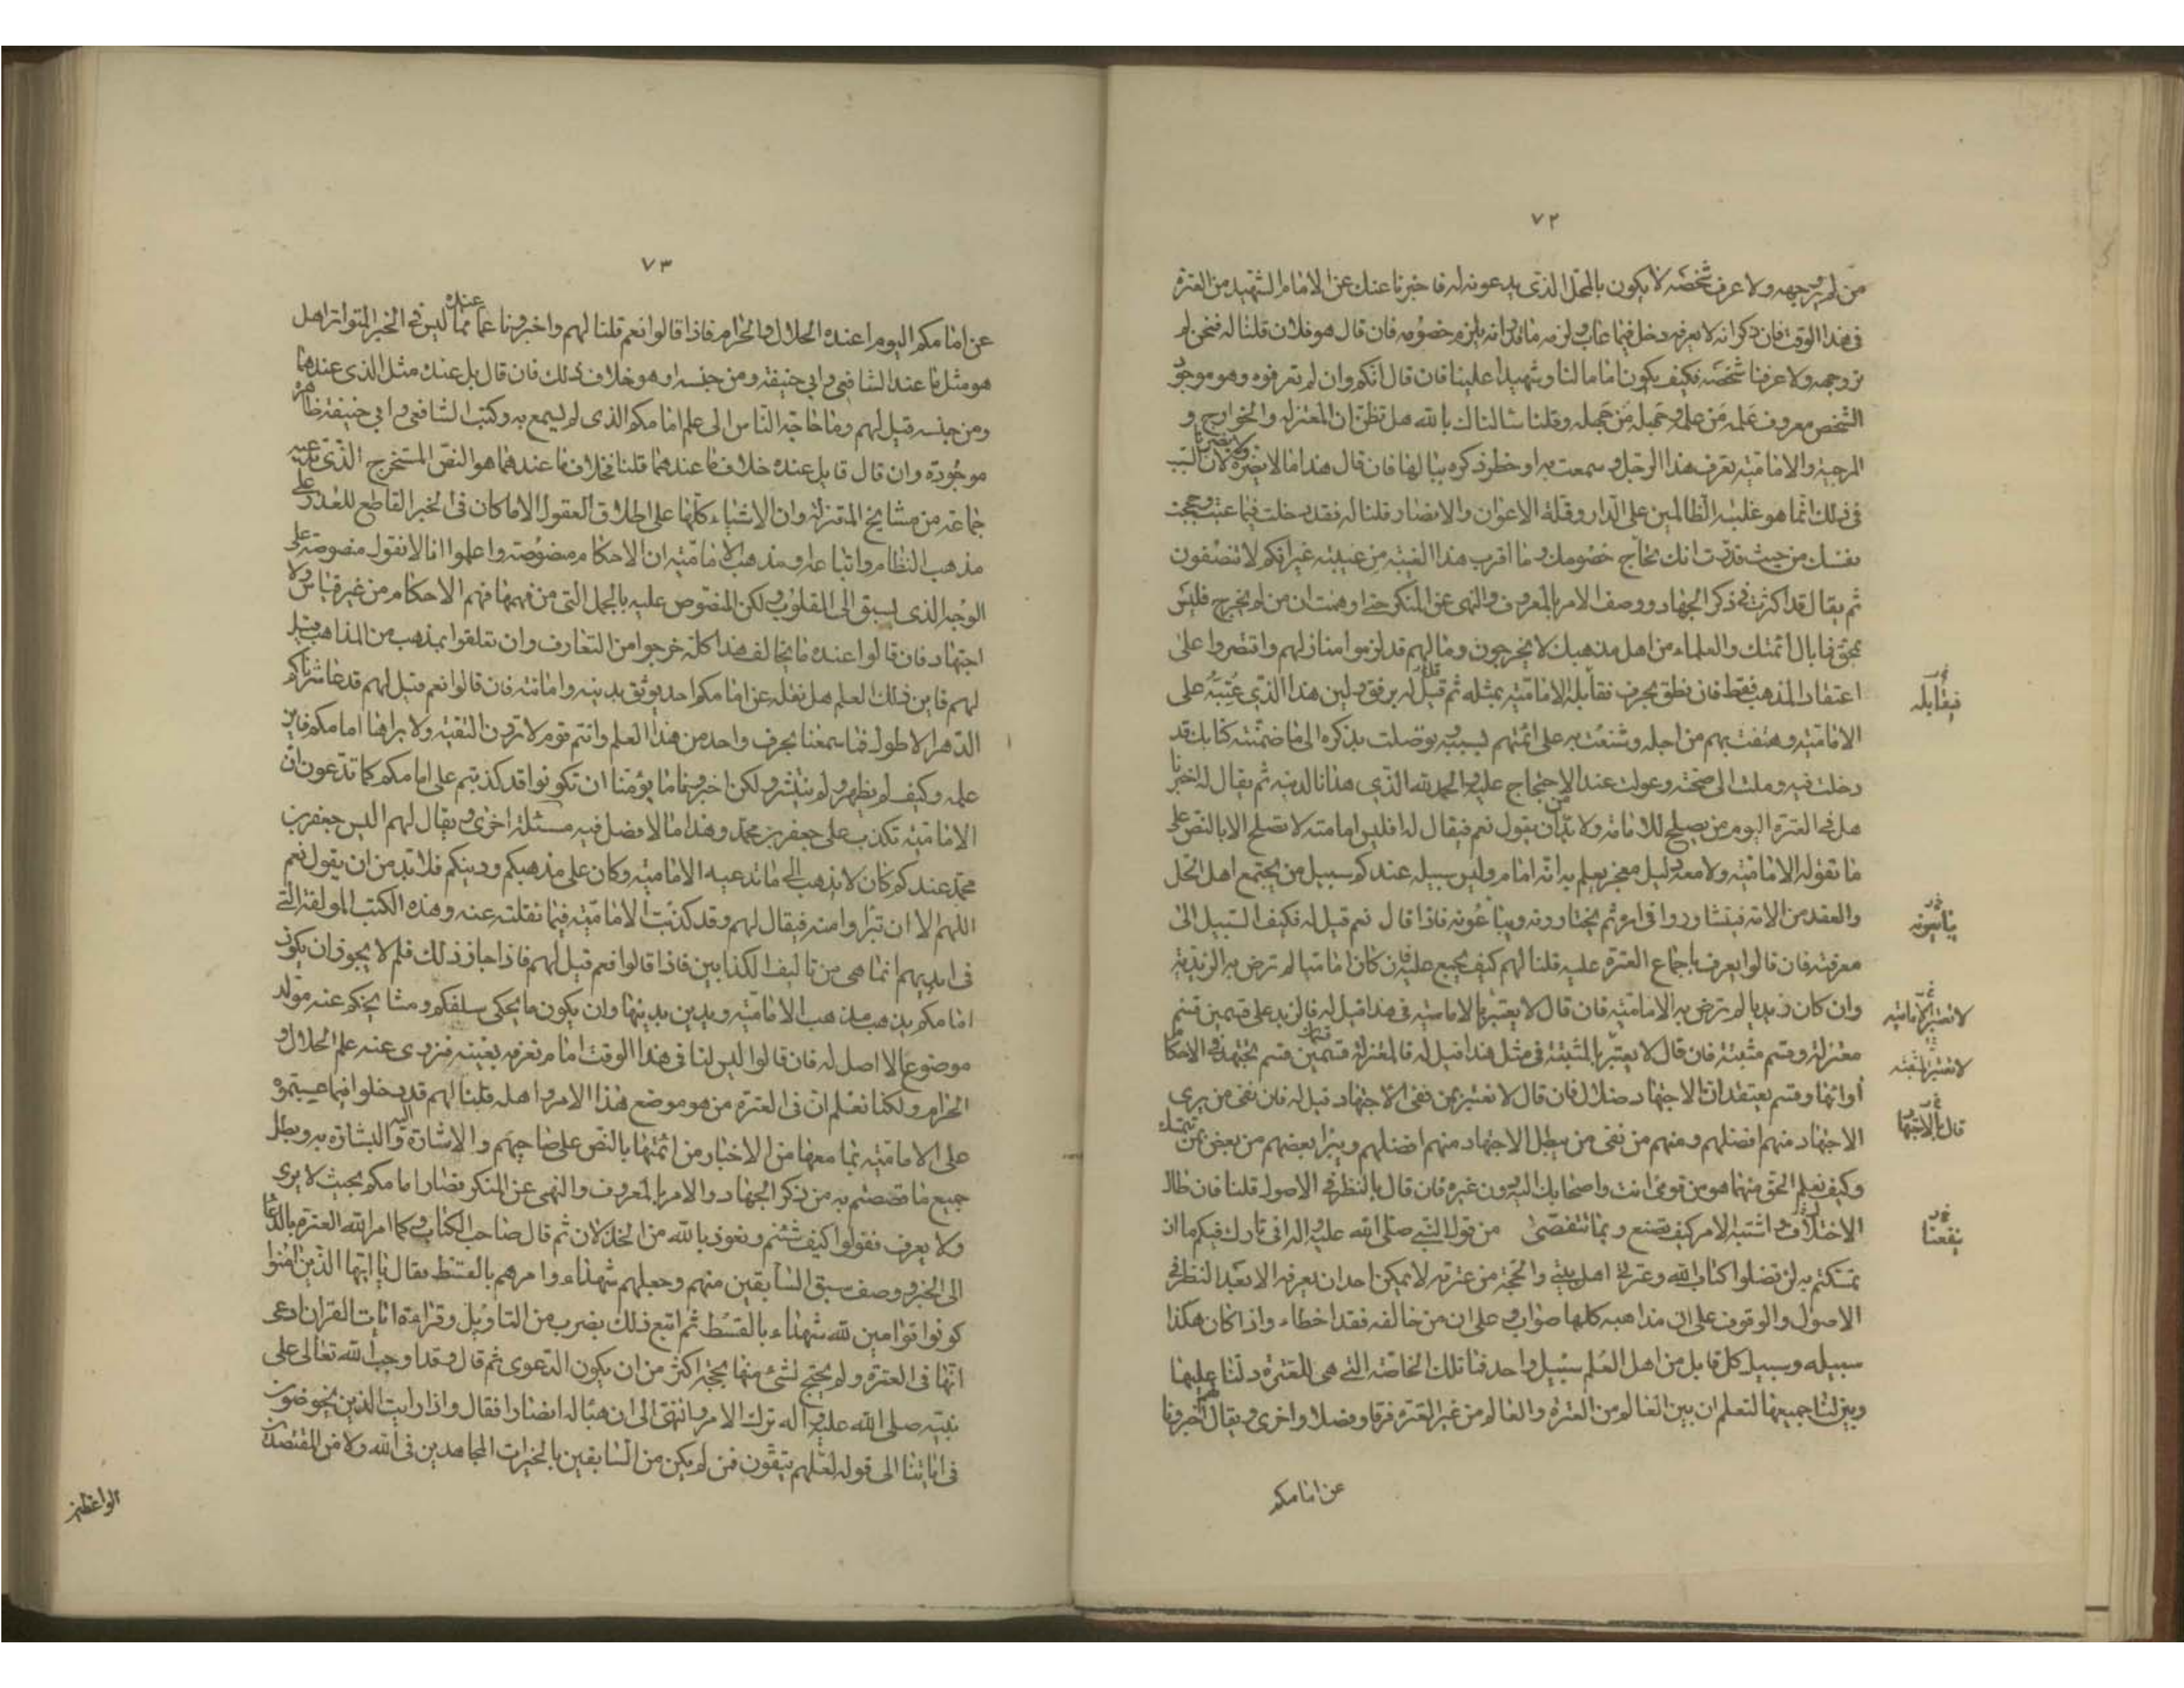 ٧٢
من لم ير وجهه ولا عرف شخصه لا يكون بالمحل الذى يدعونه له فاخبرنا عنك عن الامام الشهيد من العترة
فى هذا الوقت فان ذكر انه لا يعرفه دخل فيما عاب ولزمه ما قدر انه يلزم خصومه فان قال هو فلان قلنا له فنحن لم
نر وجهه ولا عرفنا شخصه فكيف يكون اماما لنا وشهيدا علينا فان قال انكم وان لم تعرفوه وهو موجود
الشخص معروف علمه من علمه وجهله من جهله وقلنا سالناك بالله هل تظن ان المعتزله والخوارج و
المرجية والامامية تعرف هذا الرجل وسمعت به او خطر ذكره ببالها فان قال هذا ما لا يضره ولا يضرنا لان السبب
فى ذلك انما هو غلبة الظالمين على الدار وقلة الاعوان والانصار قلنا له فقد دخلت فيما عبت وحججت
نفسك من حيث قدرت انك تحاج خصومك وما اقرب هذا الغيبه من غيبته غير انكم لا تنصفون
ثم يقال قد اكثرت فى ذكر الجهاد ووصف الامر بالمعروف والنهى عن المنكر حتى اوهمت ان من لم يخرج فليس
بمحق فما بال ائمتك والعلماء من اهل مذهبك لا يخرجون وما لهم قد لزموا منازلهم واقتصروا على
اعتقاد المذهب فقط فان نطق بحرف فقابله الامامية بمثله ثم قيل له برفق ولين هذا الذى عيبته على
الامامية وهتفت بهم من اجله وشنعت به على ائمتهم بسببه وتوصلت بذكره الى ما ضمنته كتابك قد
دخلت فيه وملت الى صحته وعولت عند الاحتجاج عليه والحمد لله الذى هدانا لدينه ثم يقال له اخبرنا
هل فى العترة اليوم من يصلح للامامة ولا بد من ان يقول نعم فيقال له افليس امامته لا تصلح الا بالنص على
ما تقوله الامامية ولا معه دليل معجز يعلم به انه امام وليس سبيله عندكم سبيل من يجتمع اهل الحل
والعقد من الامة فيتشاوروا فى امره ثم يختارونه ويبايعونه فاذا قال نعم قيل له فكيف السبيل الى
معرفته فان قالوا يعرف باجماع العترة عليه قلنا لهم كيف يجمع عليه فان كان اماميا لم ترض به الزيدية
وان كان زيديا لم ترض به الامامية فان قال لا يعتبر بالامامية فى هذا قيل له فالزيدية على قسمين قسم
معتزلة وقسم مثبتة فان قال لا يعتبر بالمثبتة فى مثل هذا قيل له فالمعتزلة قسمين قسم يجتهد فى الاحكام
آرائها وقسم يعتقد ان الاجتهاد ضلال فان قال لا نعتبر بمن نفى الاجتهاد قيل له فان بقى من يرى
الاجتهاد منهم افضلهم ومنهم من نفى من يبطل الاجتهاد منهم افضلهم ويبرا بعضهم من بعض بمن نتمسك
وكيف نعلم الحق منهما هو من تومى انت واصحابك اليه دون غيره فان قال بالنظر فى الاصول قلنا فان طال
الاختلاف واشتبه الامر كيف نصنع وبما نتفصى من قول النبى صلى الله عليه واله انى تارك فيكم ما ان
تمسكتم به لن تضلوا كتاب الله وعترتى اهل بيتى والحجة من عترته لا يمكن احد ان يعرفه الا بعد النظر فى
الاصول والوقوف على ان مذاهبه كلها صواب وعلى ان من خالفه فقد اخطاء واذا كان هكذا
سبيله وسبيل كل قابل من اهل العلم سبيل واحد فما تلك الخاصة التى هى للعترة دلنا عليها
وبين لنا جميعها لنعلم ان بين العالم من العترة والعالم من غير العترة فرقا وفصلا واخرى ويقال لهم اخبرونا
عن امامكم
فيقابله
يبايعونه
لا نعتبر الامامية
لا نعتبر المثبته
قال بالاجتهاد
يقعنا
٧٣
عن امامكم اليوم اعنده الحلال والحرام فاذا قالوا نعم قلنا لهم واخبرونا عما عنده مما ليس فى الخبر المتواتر اهل
هو مثل ما عند الشافعى وابى حنيفة ومن جنسه او هو خلاف ذلك فان قال بل عنده مثل الذى عندهما
ومن جنسه قيل لهم وما حاجة الناس الى علم امامكم الذى لم يسمع به وكتب الشافعى وابى حنيفة ظاهرة
موجودة وان قال قايل عنده خلاف ما عندهما قلنا فخلاف ما عندهما هو النص المستخرج الذى تدعيه
جماعة من مشايخ المعتزلة وان الاشياء كلها على اطلاق العقول الا ما كان فى الخبر القاطع للعذر على
مذهب النظام واتباعه او مذهب الامامية ان الاحكام منصوصة واعلموا انا لا نقول منصوصة على
الوجه الذى يسبق الى القلوب ولكن المنصوص عليه بالجمل التى من فهمها فهم الاحكام من غير قياس ولا
اجتهاد فان قالوا عنده ما يخالف هذا كله خرجوا من التعارف وان تعلقوا بمذهب من المذاهب قيل
لهم فاين ذلك العلم هل نقله عن امامكم احد يوثق بدينه وامانته فان قالوا نعم قيل لهم قد عاشرناكم
الدهر الاطول فما سمعنا بحرف واحد من هذا العلم وانتم قوم لا ترون التقية ولا يراها امامكم فاين
علمه وكيف لم يظهر ولم ينتشر ولكن اخبرونا ما يؤمننا ان تكونوا قد كذبتم على امامكم كما تدعون ان
الامامية تكذب على جعفر بن محمد وهذا ما لا فضل فيه مسئلة اخرى ويقال لهم اليس جعفر بن
محمد عندكم كان لا يذهب الى ما تدعيه الامامية وكان على مذهبكم ودينكم فلا بد من ان يقول نعم
اللهم الا ان تبراوا منه فيقال لهم وقد كذبت الامامية فيما نقلته عنه وهذه الكتب المولفة التى
فى ايديهم انما هى من تاليف الكذابين فاذا قالوا نعم قيل لهم فاذا جاز ذلك فلم لا يجوز ان يكون
امامكم يذهب مذهب الامامية ويدين بدينها وان يكون ما يحكى سلفكم ومشايخكم عنه مولد
موضوعا لا اصل له فان قالوا ليس لنا فى هذا الوقت امام نعرفه بعينه فنروى عنه علم الحلال و
الحرام ولكنا نعلم ان فى العترة من هو موضع هذا الامر واهله قلنا لهم قد دخلوا فيما عيبتموه
على الامامية بما معها من الاخبار من ائمتها بالنص على صاحبهم والاشارة اليه والبشارة به وبطل
جميع ما قصصتم به من ذكر الجهاد والامر بالمعروف والنهى عن المنكر فصار امامكم بحيث لا يرى
ولا يعرف فقولوا كيف شئتم ونعوذ بالله من الخذلان ثم قال صاحب الكتاب وكما امر الله العترة بالدعا
الى الخير ووصف سبق السابقين منهم وجعلهم شهداء وامرهم بالقسط فقال يا ايها الذين امنوا
كونوا قوامين لله شهداء بالقسط ثم اتبع ذلك بضرب من التاويل وقراءة ايات القران ادعى
انها فى العترة ولم يحتج لشئ منها بحجة اكثر من ان يكون الدعوى ثم قال وقد اوجب الله تعالى على
نبيه صلى الله عليه واله ترك الامر والنهى الى ان هيا له انصارا فقال واذا رايت الذين يخوضون
فى اياتنا الى قوله لعلهم يتقون فمن لم يكن من السابقين بالخيرات المجاهدين فى الله ولا من المقتصدين
الواعظين